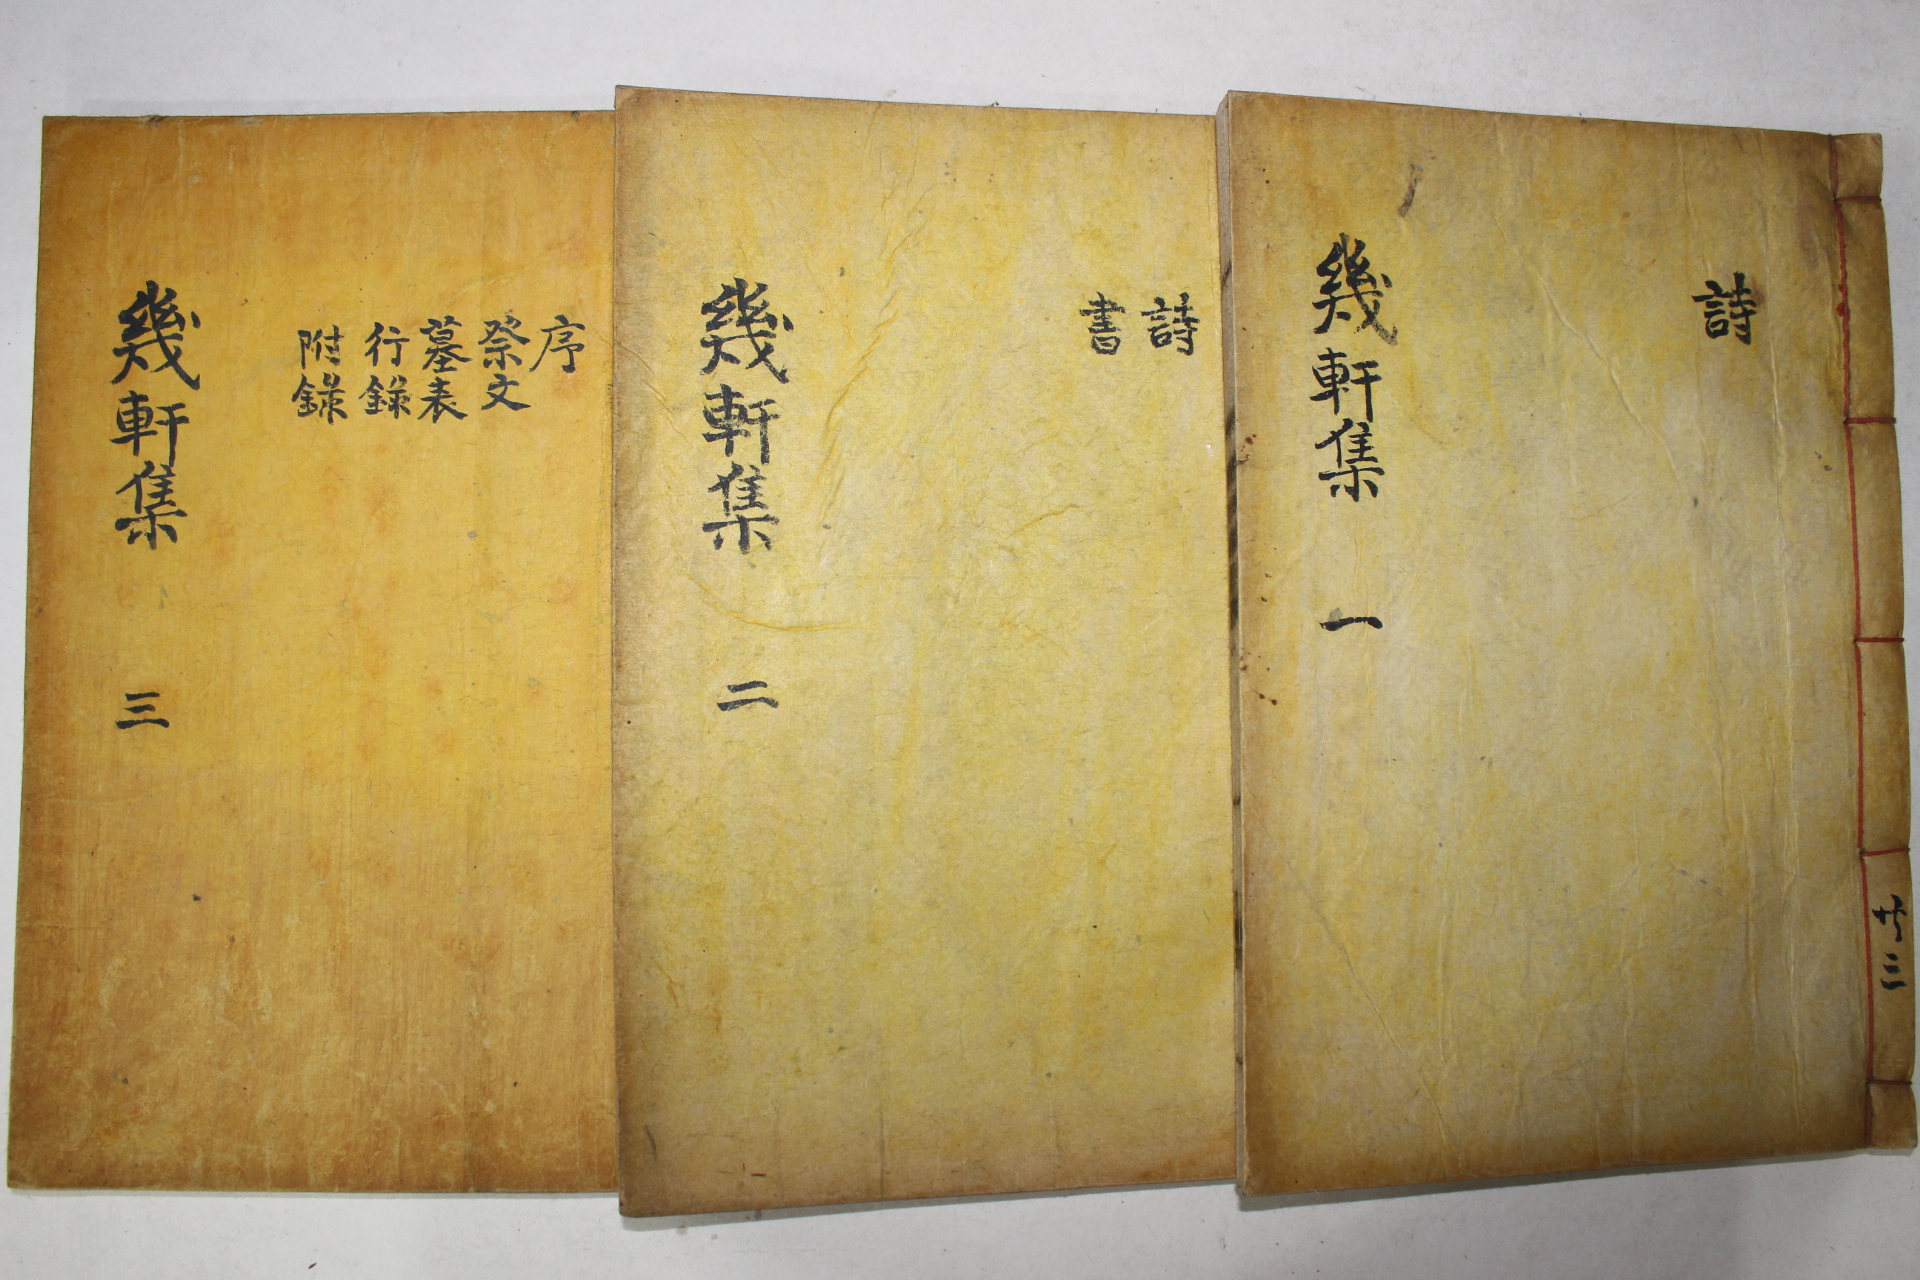 詩
幾軒集 一
詩
書
幾軒集 二
序
祭文
墓表
行錄
附錄
幾軒集 三